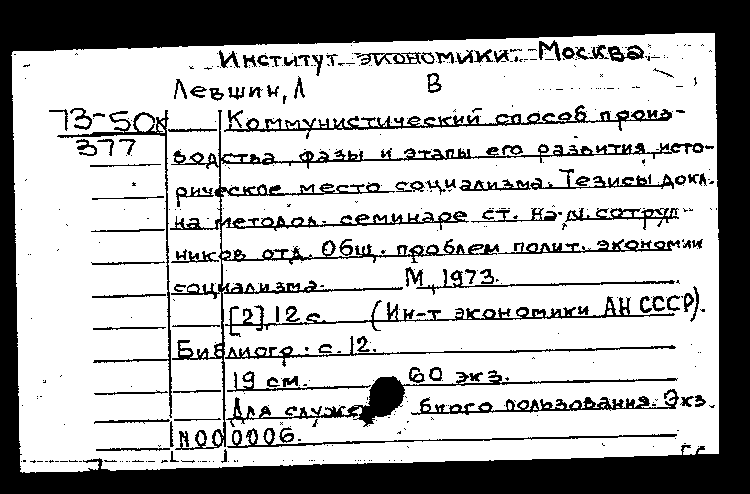 Институт экономики. Москва.
Левшин, Л В
73-50к Коммунистический способ произ-
377
водства, фазы и этапы его развития, исто-
рическое место социализма. Тезисы докл.
на методол. семинаре ст. научн. сотруд-
ников отд. Общ. проблем полит. экономии
социализма. М, 1973.
[2], 12 с. (Ин-т экономики АН СССР).
Библиогр.: с. 12.
19 см. 60 экз.
Для служебного пользования. Экз.
N000006.